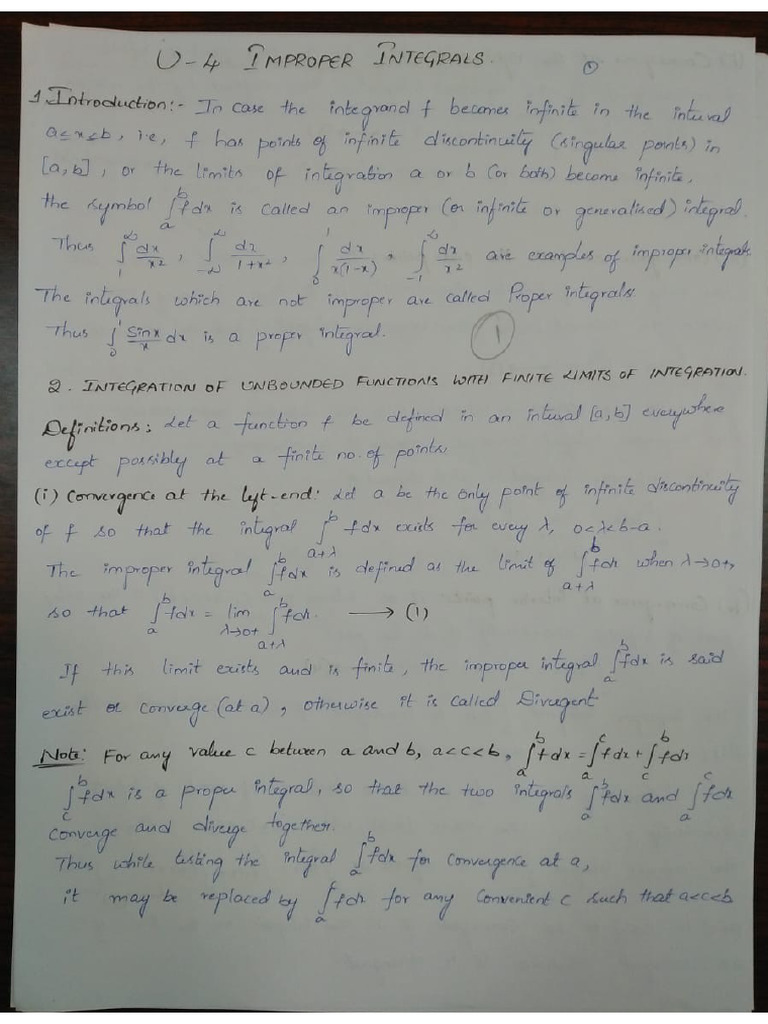 U-4 IMPROPER INTEGRALS. ①
1. Introduction:- In case the integrand f becomes infinite in the interval
a≤x≤b, i.e, f has points of infinite discontinuity (singular points) in
[a,b], or the limits of integration a or b (or both) become infinite,
the symbol ∫_a^b fdx is called an improper (or infinite or generalised) integral.
Thus ∫_1^∞ dx/x², ∫_{-∞}^∞ dx/(1+x²), ∫_0^1 dx/(x(1-x)), ∫_{-1}^∞ dx/x² are examples of improper integrals.
The integrals which are not improper are called Proper integrals.
Thus ∫_0^1 Sinx/x dx is a proper integral. ①
2. INTEGRATION OF UNBOUNDED FUNCTIONS WITH FINITE LIMITS OF INTEGRATION.
Definitions: Let a function f be defined in an interval [a,b] everywhere
except possibly at a finite no. of points.
(i) Convergence at the left-end: Let a be the only point of infinite discontinuity
of f so that the integral ∫_{a+λ}^b fdx exists for every λ, 0<λ<b-a.
The improper integral ∫_a^b fdx is defined as the limit of ∫_{a+λ}^b fdx when λ→0+,
so that ∫_a^b fdx = lim_{λ→0+} ∫_{a+λ}^b fdx. ⟶ (1)
If this limit exists and is finite, the improper integral ∫_a^b fdx is said
exist or converge (at a), otherwise it is called Divergent
Note: For any value c between a and b, a<c<b, ∫_a^b fdx = ∫_a^c fdx + ∫_c^b fdx
∫_c^b fdx is a proper integral, so that the two integrals ∫_a^b fdx and ∫_a^c fdx
converge and diverge together.
Thus while testing the integral ∫_a^b fdx for convergence at a,
it may be replaced by ∫_a fdx for any convenient c such that a<c<b